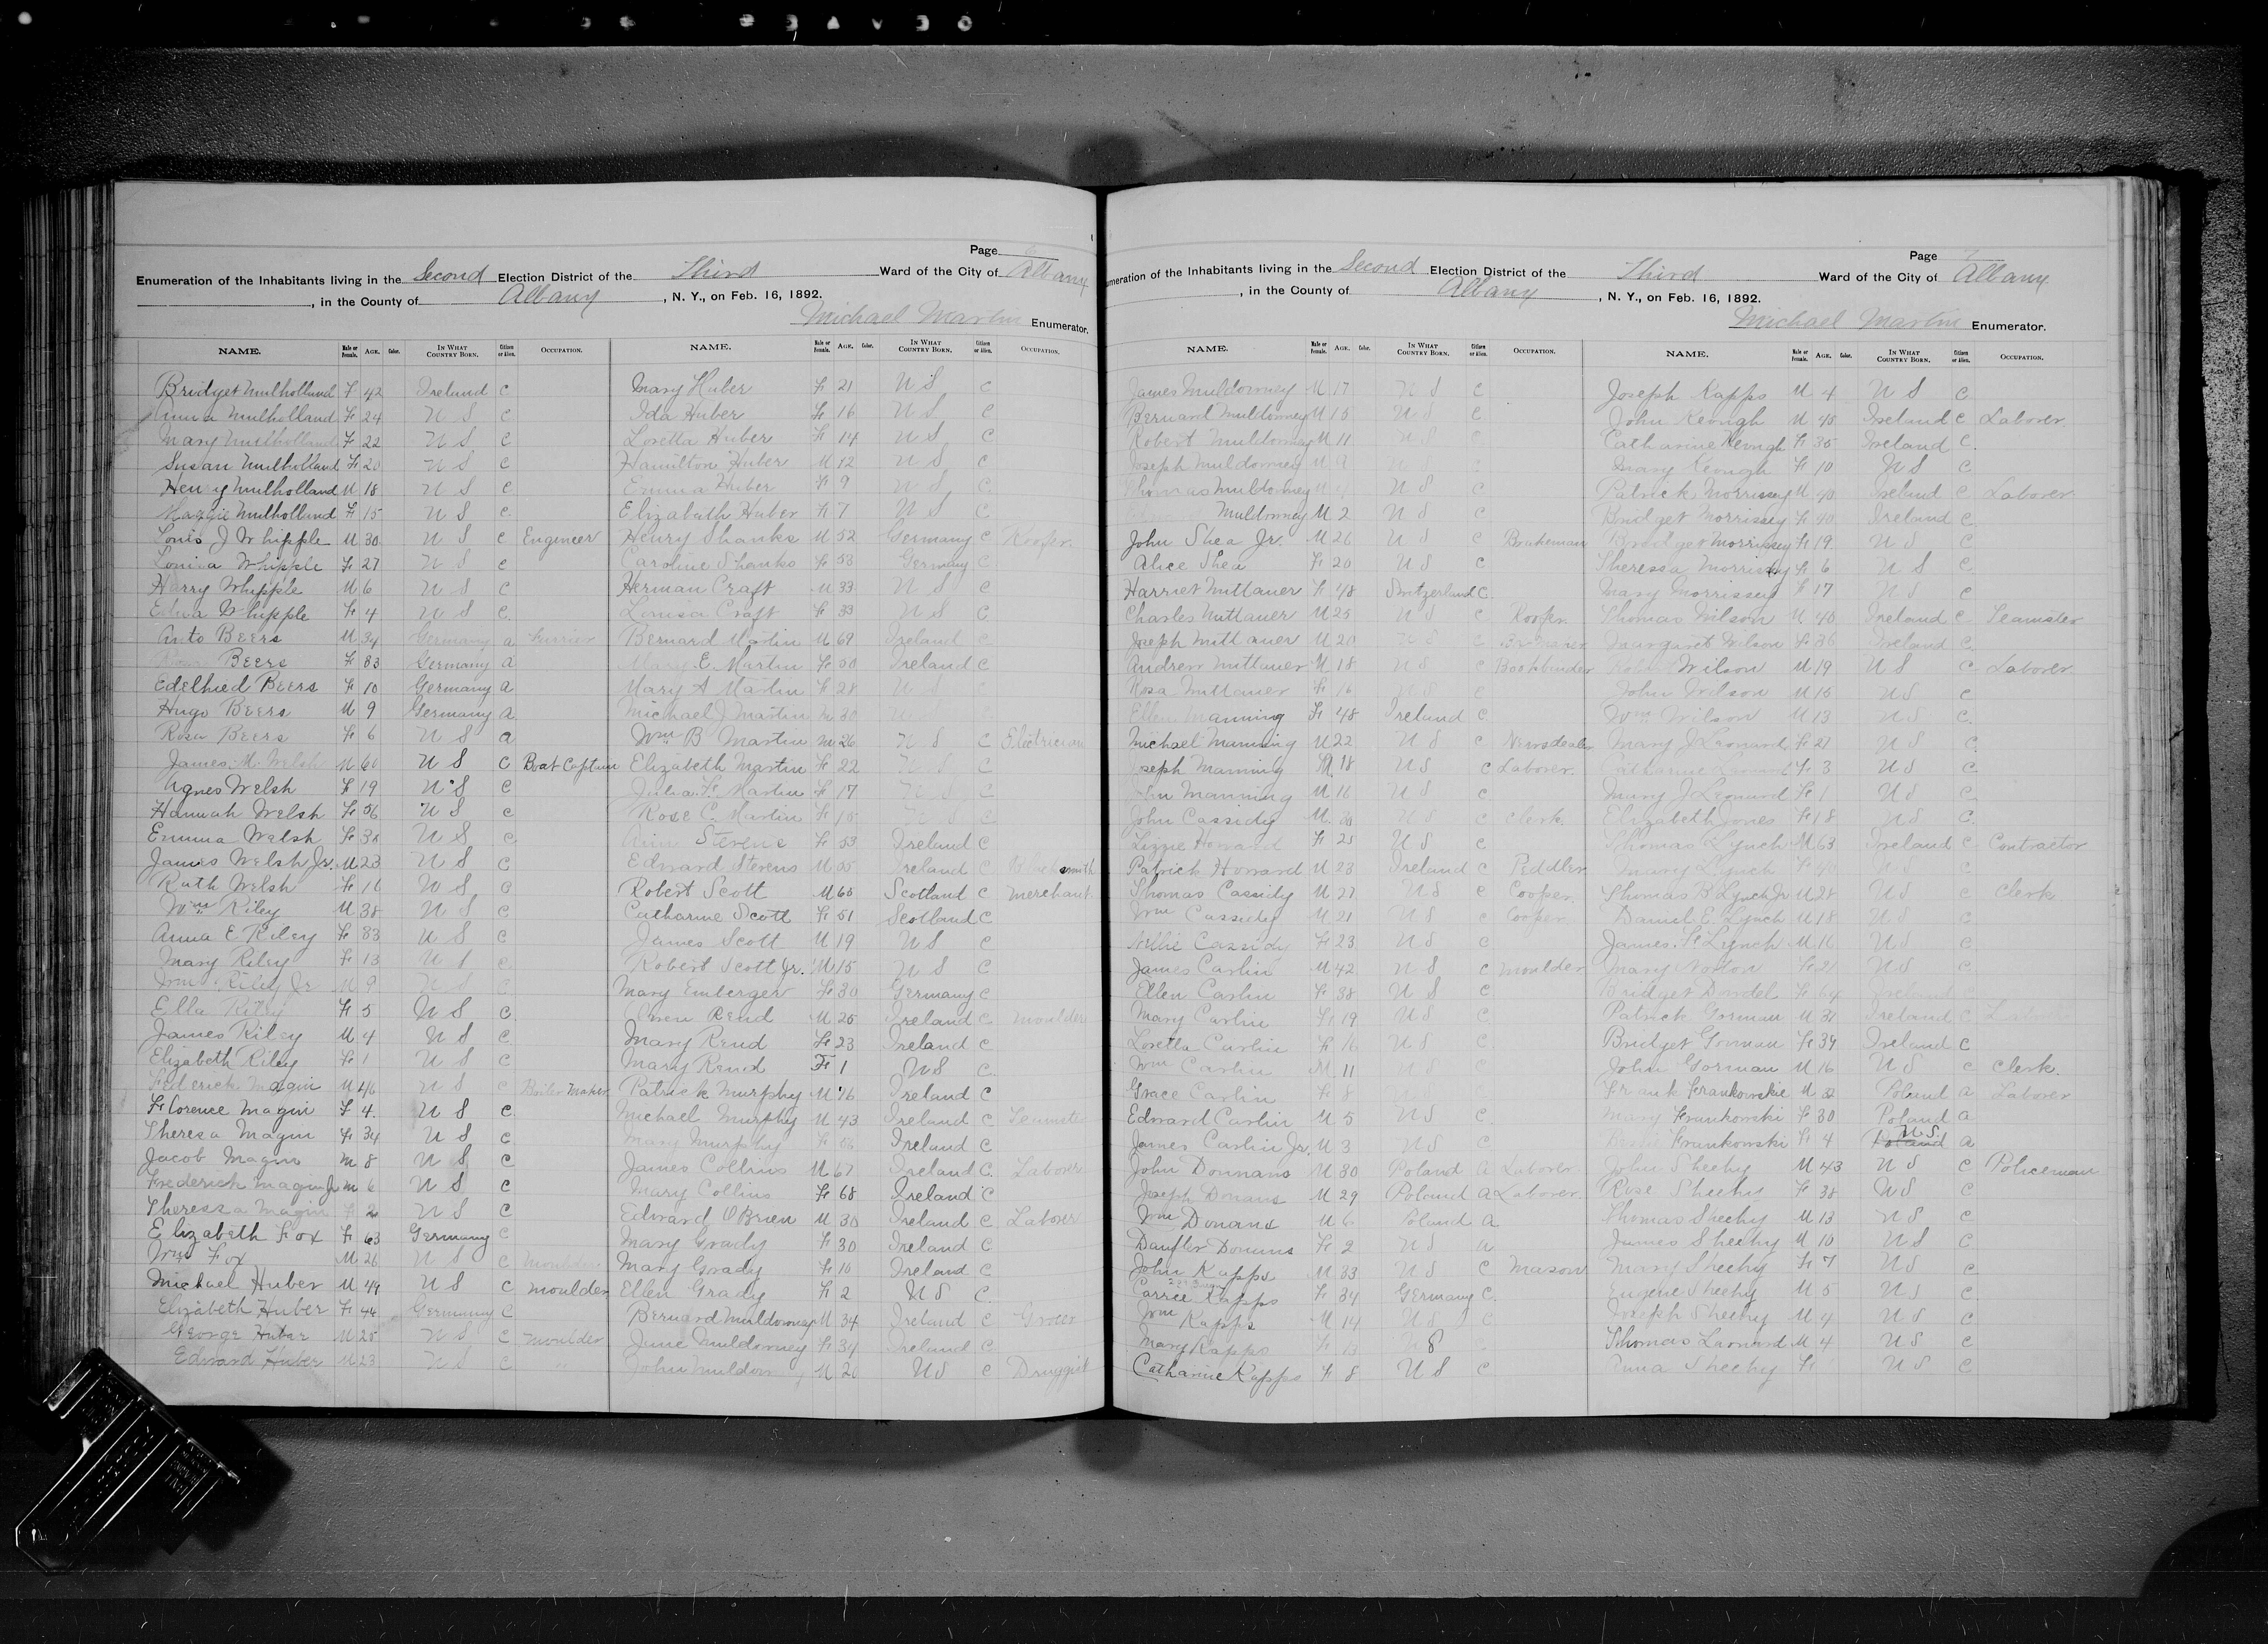 Page
Enumeration of the Inhabitants living in the Second Election District of the Third Ward of the City of Albany
, in the County of Albany, N. Y., on Feb. 16, 1892.
Michael Martin Enumerator.
NAME. Male or Female. AGE. Color. IN WHAT COUNTRY BORN. Citizen or Alien. OCCUPATION.
Bridget Mulholland F 42 Ireland C
Anna Mulholland F 24 U S C
Mary Mulholland F 22 U S C
Susan Mulholland F 20 U S C
Henry Mulholland M 18 U S C
Maggie Mulholland F 15 U S C
Louis J Whipple M 30 U S C Engineer
Louisa Whipple F 27 U S C
Harry Whipple M 6 U S C
Edna Whipple F 4 U S C
Anto Beers M 34 Germany a Furrier
Beers F 33 Germany a
Edelhied Beers F 10 Germany a
Hugo Beers M 9 Germany a
Rosa Beers F 6 U S a
James M. Welsh M 60 U S C Boat Captain
Agnes Welsh F 19 U S C
Hannah Welsh F 56 U S C
Emma Welsh F 38 U S C
James Welsh Jr. M 23 U S C
Ruth Welsh F 16 U S C
Wm Riley M 38 U S C
Anna E Riley F 33 U S C
Mary Riley F 13 U S C
Wm Riley Jr M 9 U S C
Ella Riley F 5 U S C
James Riley M 4 U S C
Elizabeth Riley F 1 U S C
Frederick Magin M 46 U S C Boiler Maker
Florence Magin F 4 U S C
Theresa Magin F 34 U S C
Jacob Magin M 8 U S C
Frederick Magin Jr M 6 U S C
Theressa Magin F 2 U S C
Elizabeth Fox F 63 Germany C
Wm Fox M 26 U S C Moulder
Michael Huber M 49 U S C Moulder
Elizabeth Huber F 44 Germany C
George Huber M 25 U S C Moulder
Edward Huber M 23 U S C "
NAME. Male or Female. AGE. Color. IN WHAT COUNTRY BORN. Citizen or Alien. OCCUPATION.
Mary Huber F 21 U S C
Ida Huber F 16 U S C
Loretta Huber F 14 U S C
Hamilton Huber M 12 U S C
Emma Huber F 9 U S C
Elizabeth Huber F 7 U S C
Henry Shanks M 52 Germany C Roofer
Caroline Shanks F 53 Germany C
Herman Craft M 33 U S C
Louisa Craft F 33 U S C
Bernard Martin M 69 Ireland C
Mary E. Martin F 50 Ireland C
Mary A Martin F 28 U S C
Michael J Martin M 30
Wm B Martin M 26 U S C Electrician
Elizabeth Martin F 22 U S C
Julia F. Martin F 17 U S C
Rose C. Martin F 15 U S C
Ann Stevens F 53 Ireland C
Edward Stevens M 55 Ireland C Blacksmith
Robert Scott M 65 Scotland C Merchant
Catharine Scott F 51 Scotland C
James Scott M 19 U S C
Robert Scott Jr. M 15 U S C
Mary Emberger F 30 Germany C
Owen Rend M 25 Ireland C Moulder
Mary Rend F 23 Ireland C
Mary Rend F 1 U S C
Patrick Murphy M 76 Ireland C
Michael Murphy M 43 Ireland C Teamster
Mary Murphy F Ireland C
James Collins M 67 Ireland C Laborer
Mary Collins F 68 Ireland C
Edward O Brien M 30 Ireland C Laborer
Mary Grady F 30 Ireland C
Mary Grady F 10 Ireland C
Ellen Grady F 2 U S C
Bernard Muldowney M 34 Ireland C Grocer
June Muldowney F 34 Ireland C
John Muldow y M 20 U S C Druggist
Page 7
umeration of the Inhabitants living in the Second Election District of the Third Ward of the City of Albany
, in the County of Albany, N. Y., on Feb. 16, 1892.
Michael Martin Enumerator.
NAME. Male or Female. AGE. Color. IN WHAT COUNTRY BORN. Citizen or Alien. OCCUPATION.
James Muldowney M 17 U S C
Bernard Muldowney M 15 U S C
Robert Muldowney M 11 U S C
Joseph Muldowney M 9 U S C
Thomas Muldowney M 4 U S C
Muldowney M 2 U S C
John Shea Jr. M 26 U S C Brakeman
Alice Shea F 20 U S C
Harriet Mittauer F 48 Switzerland C
Charles Mittauer M 25 U S C Roofer
Joseph Mittauer M 20 U S C
Andrew Mittauer M 18 U S C Bookbinder
Rosa Mittauer F 16 U S C
Ellen Manning F 48 Ireland C
Michael Manning M 22 U S C Newsdealer
Joseph Manning M 18 U S C Laborer
John Manning M 16 U S C
John Cassidy M U S C Clerk
Lizzie Howard F 25 U S C
Patrick Howard M 23 Ireland C Peddler
Thomas Cassidy M 27 U S C Cooper
Wm Cassidy M 21 U S C Cooper
Nellie Cassidy F 23 U S C
James Carlin M 42 U S C Moulder
Ellen Carlin F 38 U S C
Mary Carlin F 19 U S C
Loretta Carlin F 16 U S C
Wm Carlin M 11 U S C
Grace Carlin F 8
Edward Carlin M 5 U S C
James Carlin Jr. M 3 U S C
John Donnans M 30 Poland A Laborer
Joseph Donans M 29 Poland A Laborer
Wm Donans M 6 Poland A
Daufler Donans F 2 U S a
John Kapps M 33 U S C Mason
Carrie Kapps F 34 Germany C
Wm Kapps M 14 U S C
Mary Kapps F 13 U S
Catharine Kapps F 8 U S C
NAME. Male or Female. AGE. Color. IN WHAT COUNTRY BORN. Citizen or Alien. OCCUPATION.
Joseph Kapps M 4 U S C
John Keough M 45 Ireland C Laborer
Catharine Keough F 35 Ireland C
Mary Keough F 10 U S C
Patrick Morrissey M 40 Ireland C Laborer
Bridget Morrissey F 40 Ireland C
Bridget Morrissey F 19 U S C
Theressa Morrissey F 6 U S C
Mary Morrissey F 17 U S C
Thomas Wilson M 40 Ireland C Teamster
Margaret Wilson F 36 Ireland C
Robert Wilson M 19 U S C Laborer
John Wilson M 15 U S C
Wm Wilson M 13 U S C
Mary J Leonard F 21 U S C
Catharine Leonard F 3 U S C
Mary J Leonard F 1 U S C
Elizabeth Jones F 18 U S C
Thomas Lynch M 63 Ireland C Contractor
Mary Lynch F U S C
Thomas B Lynch Jr M 28 U S C Clerk
Daniel E. Lynch M 18 U S C
James F Lynch M 16 U S C
Mary Norton F 21 U S C
Bridget Dowdel F 64 Ireland C
Patrick Gorman M Ireland C
Bridget Gorman F 39 Ireland C
John Gorman M 16 U S C Clerk
Frank Frankowskie M 32 Poland a Laborer
Mary Frankowski F 30 Poland a
Frankowski F 4 Poland U S a
John Sheehy M 43 U S C Policeman
Rose Sheehy F 38 U S C
Thomas Sheehy M 13 U S C
James Sheehy M 10 U S C
Mary Sheehy F 7 U S C
Eugene Sheehy M 5 U S C
Joseph Sheehy M 4 U S C
Thomas Leonard M 4 U S C
Anna Sheehy F U S C